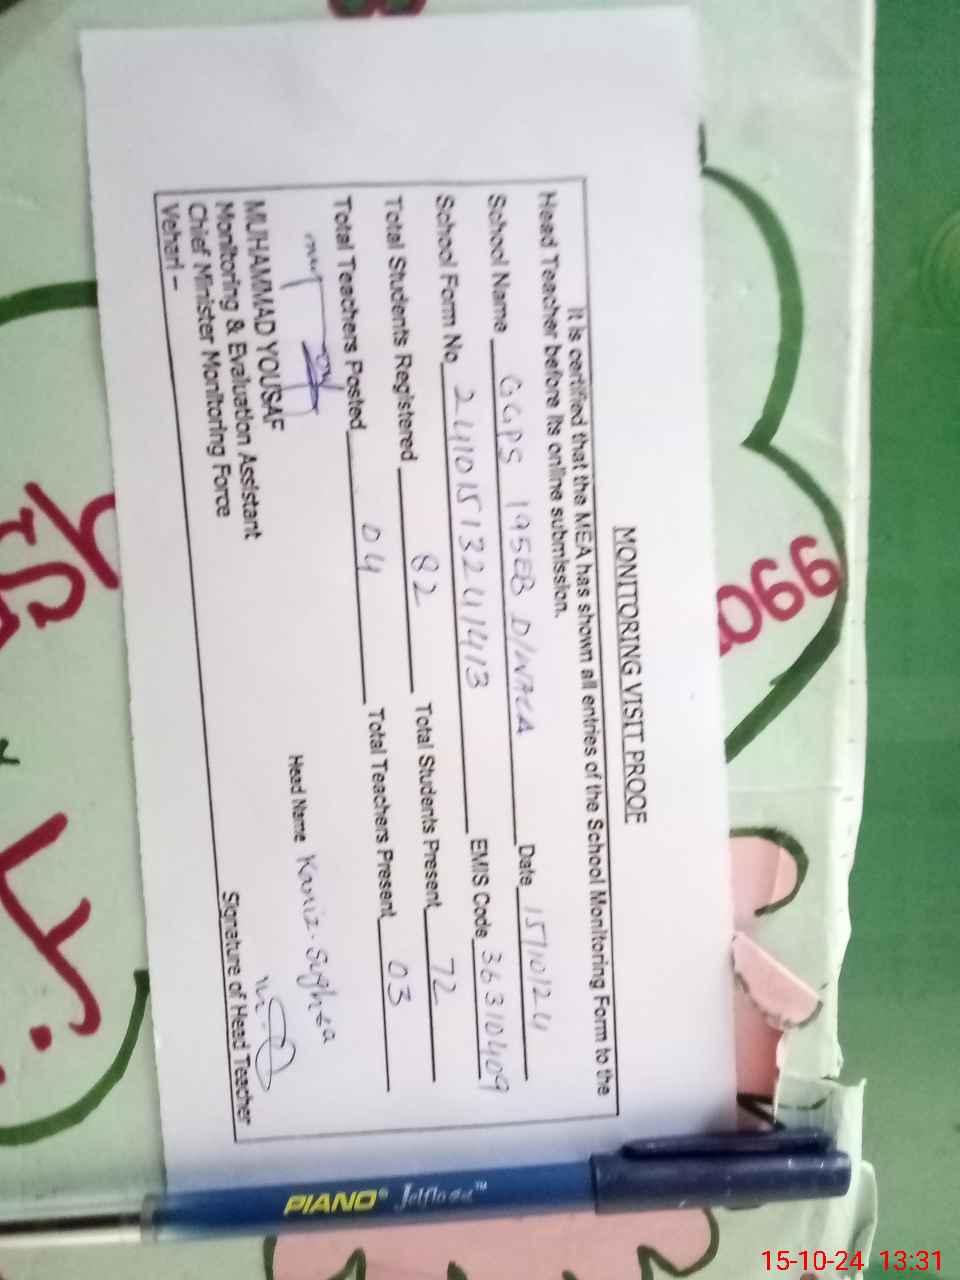 MONITORING VISIT PROOF
It is certified that the MEA has shown all entries of the School Monitoring Form to the
Head Teacher before its online submission.
School Name GGPS 195EB Date 15/10/24
School Form No 24101513241413 EMIS Code 36310409
Total Students Registered 82 Total Students Present 72
Total Teachers Posted 04 Total Teachers Present 03
Head Name Kaniz Sughra
MUHAMMAD YOUSAF
Monitoring & Evaluation Assistant
Chief Minister Monitoring Force
Vehari –
Signature of Head Teacher
PIANO® Jelflo
15-10-24 13:31